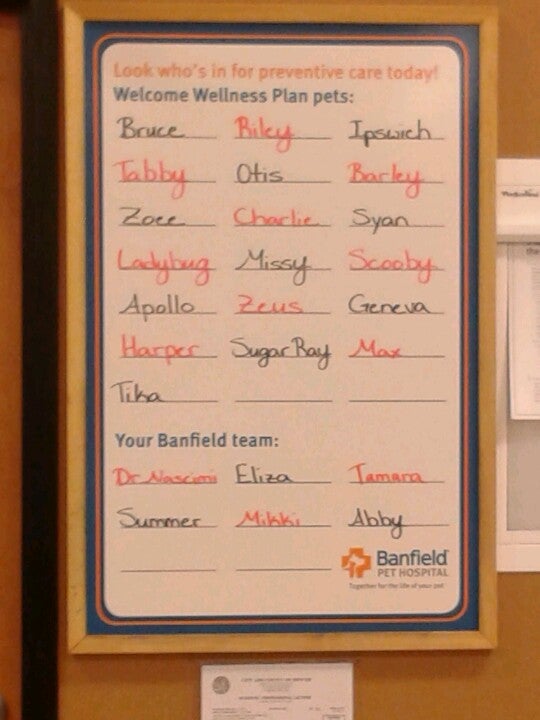 Look who's in for preventive care today!
Welcome Wellness Plan pets:
Bruce Riley Ipswich
Tabby Otis Barley
Zoee Charlie Syan
Ladybug Missy Scooby
Apollo Zeus Geneva
Harper Sugar Ray Max
Tika
Your Banfield team:
Dr Nascimi Eliza Tamara
Summer Mikki Abby
Banfield
PET HOSPITAL
Together for the life of your pet